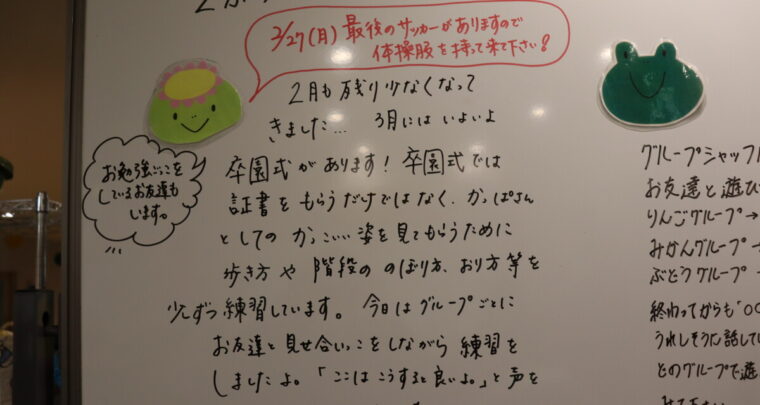 2/27(月) 最後のサッカーがありますので
体操服を持って来て下さい!
2月も残り少なくなって
きました… 3月にはいよいよ
卒園式があります!卒園式では
証書をもらうだけではなく、かっぱさん
としての かっこいい姿を見てもらうために
歩き方や階段ののぼり方、おり方等を
少しずつ練習しています。今日はグループごとに
お友達と見せ合いっこをしながら練習を
しましたよ。「ここはこうすると良いよ。」と声を
お勉強ごっこを
しているお友達も
います。
グループシャッフル
お友達と遊び
りんごグループ→
みかんグループ→
ぶどうグループ→
終わってからも「〇〇
うれしそうに話してい
とのグループで遊